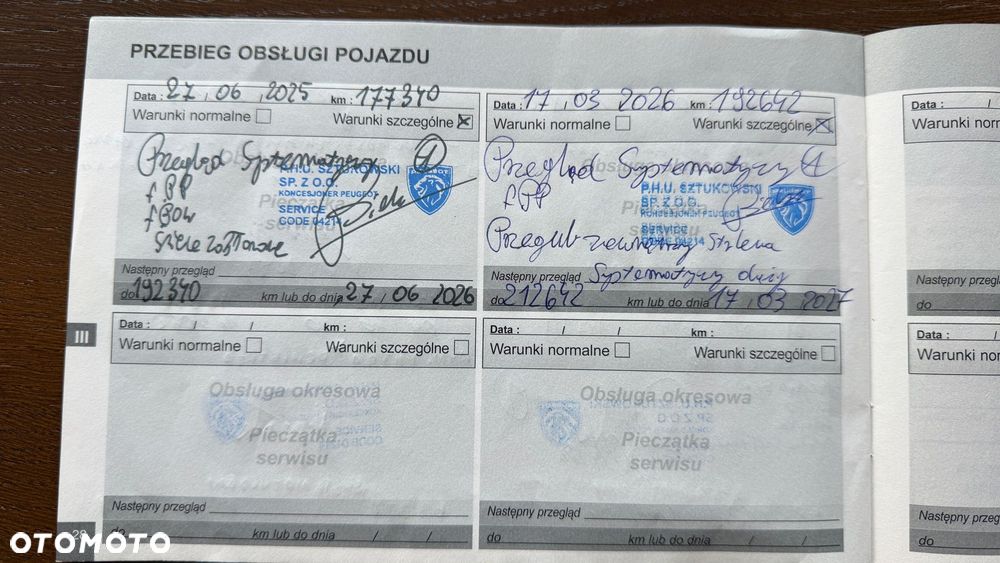 PRZEBIEG OBSŁUGI POJAZDU
Data : 27 / 06 / 2025 km : 177340
Warunki normalne Warunki szczególne
Przegląd Systematyczny A
f. PP
f. POW
Świece zapłonowe
P.H.U. SZTUKOWSKI
SP. Z O.O.
KONCESJONER PEUGEOT
SERVICE
CODE 04214
Następny przegląd
do 192340 km lub do dnia 27 / 06 2026
Data : 17 / 03 2026 km : 192642
Warunki normalne Warunki szczególne
Przegląd Systematyczny A
f. PP
Przegub zewnętrzny
P.H.U. SZTUKOWSKI
SP. Z O.O.
KONCESJONER PEUGEOT
SERVICE
CODE 04214
Następny przegląd Systematyczny duży
do 212642 km lub do dnia 17 / 03 2027
III
Data : / / km :
Warunki normalne Warunki szczególne
Obsługa okresowa
Pieczątka
serwisu
Następny przegląd
do km lub do dnia / /
Data : / / km :
Warunki normalne Warunki szczególne
Obsługa okresowa
Pieczątka
serwisu
Następny przegląd
do km lub do dnia / /
28
Data :
do
Data :
do
OTOMOTO